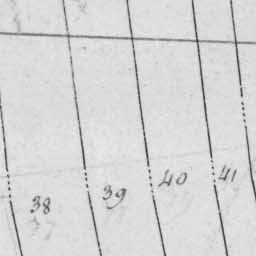 38 39 40 41